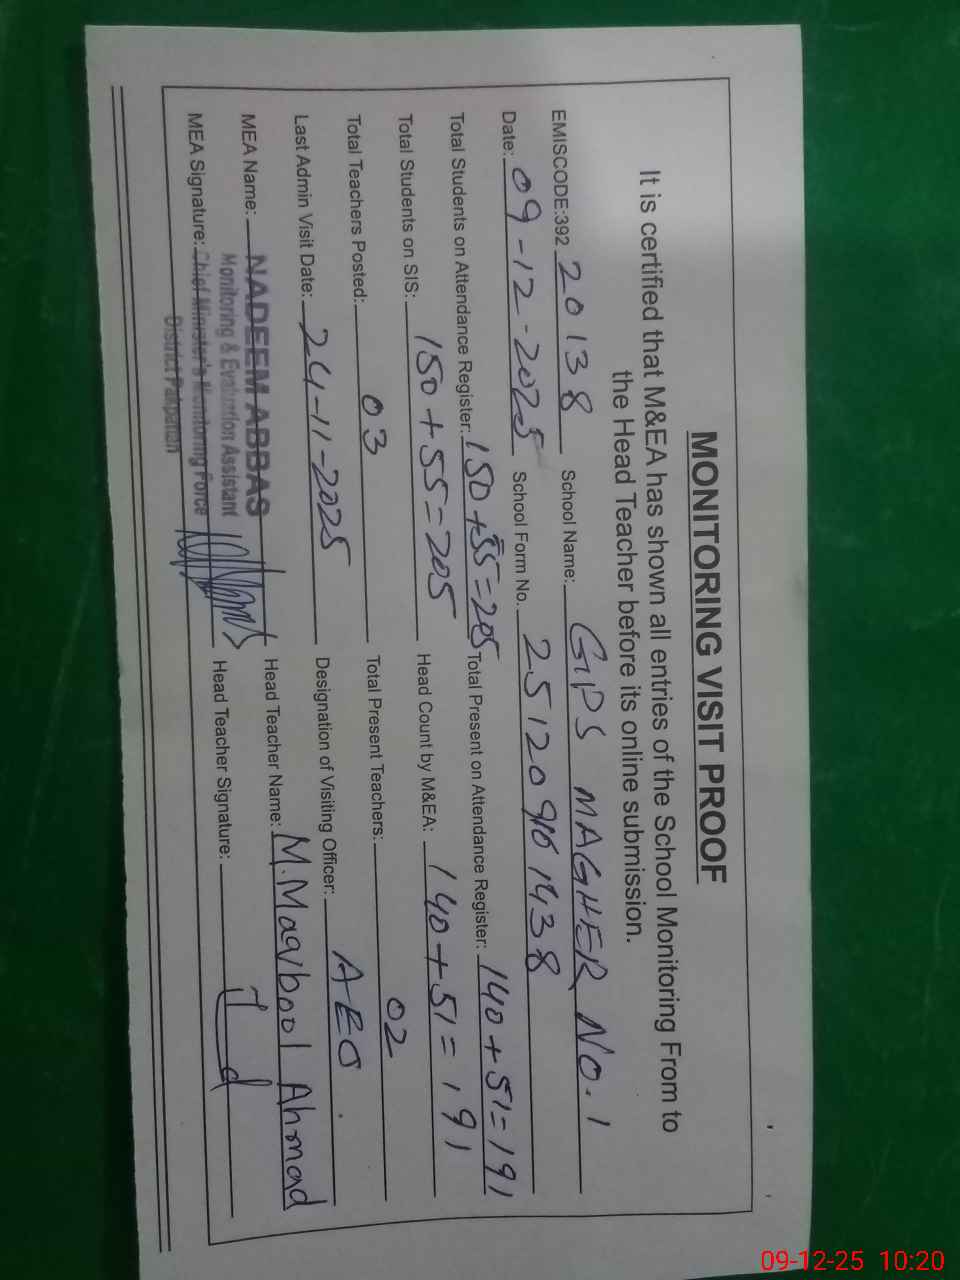 MONITORING VISIT PROOF
It is certified that M&EA has shown all entries of the School Monitoring From to
the Head Teacher before its online submission.
EMISCODE:392 20138 School Name: GPS MAGHER NO.1
Date: 09-12-2025 School Form No. 
Total Students on Attendance Register: 150+55=205 Total Present on Attendance Register: 140+51=191
Total Students on SIS: 150+55=205 Head Count by M&EA: 140+51=191
Total Teachers Posted: 03 Total Present Teachers: 02
Last Admin Visit Date: 24-11-2025 Designation of Visiting Officer: AEO
MEA Name: NADEEM ABBAS Head Teacher Name: M.Maqbool Ahmad
Monitoring & Evaluation Assistant
MEA Signature: Chief Minister's Monitoring Force Head Teacher Signature:
District Pakpattan
09-12-25 10:20